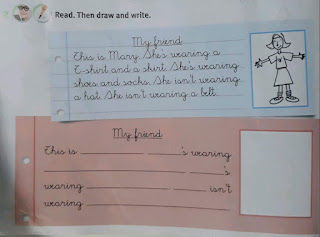 Read. Then draw and write.
My friend
This is Mary. She's wearing a
T-shirt and a skirt. She's wearing
shoes and socks. She isn't wearing
a hat. She isn't wearing a belt.
My friend
This is ______ ______'s wearing
______ ______'s
wearing ______ ______ isn't
wearing ______